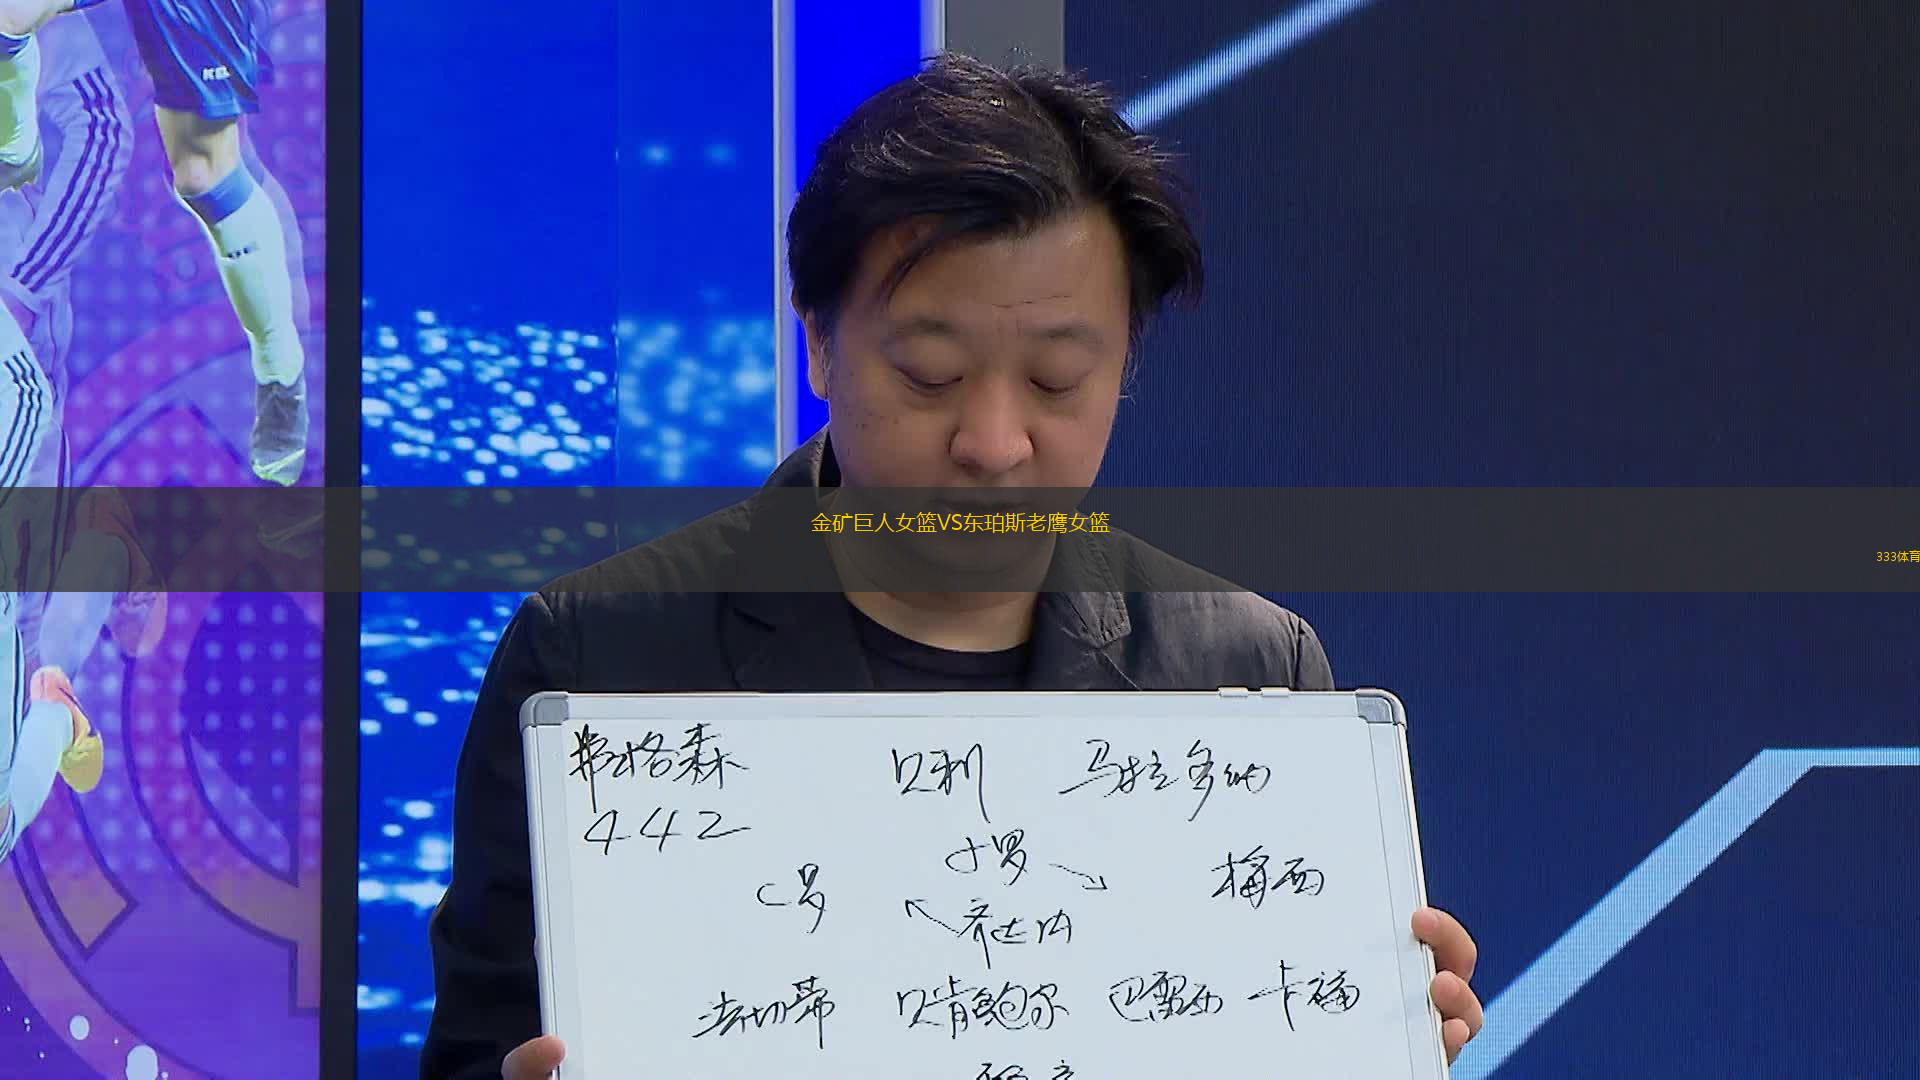 KELME
金矿巨人女篮VS东珀斯老鹰女篮
333体育
弗格森 贝利 马拉多纳
442
小罗
C罗 梅西
齐达内
法切蒂 贝肯鲍尔 巴雷西 卡福